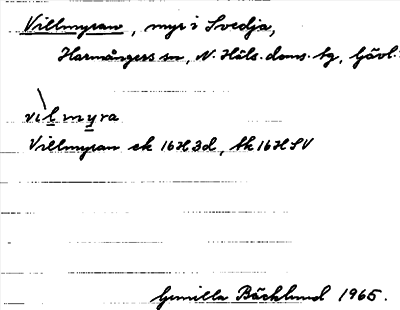 Villmyran, myr i Svedja,
Harmångers sn, N. Häls. doms. hg, Gävl.
vilmyra
Villmyran ek 16H3d, tk 16HSV
Gunilla Bäcklund 1965.